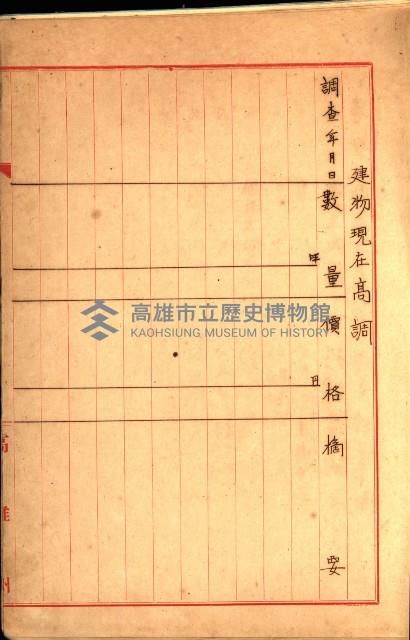 建物現在高調
調査年月日
数量
價格
摘要
円
高雄州
高雄市立歷史博物館
KAOHSIUNG MUSEUM OF HISTORY